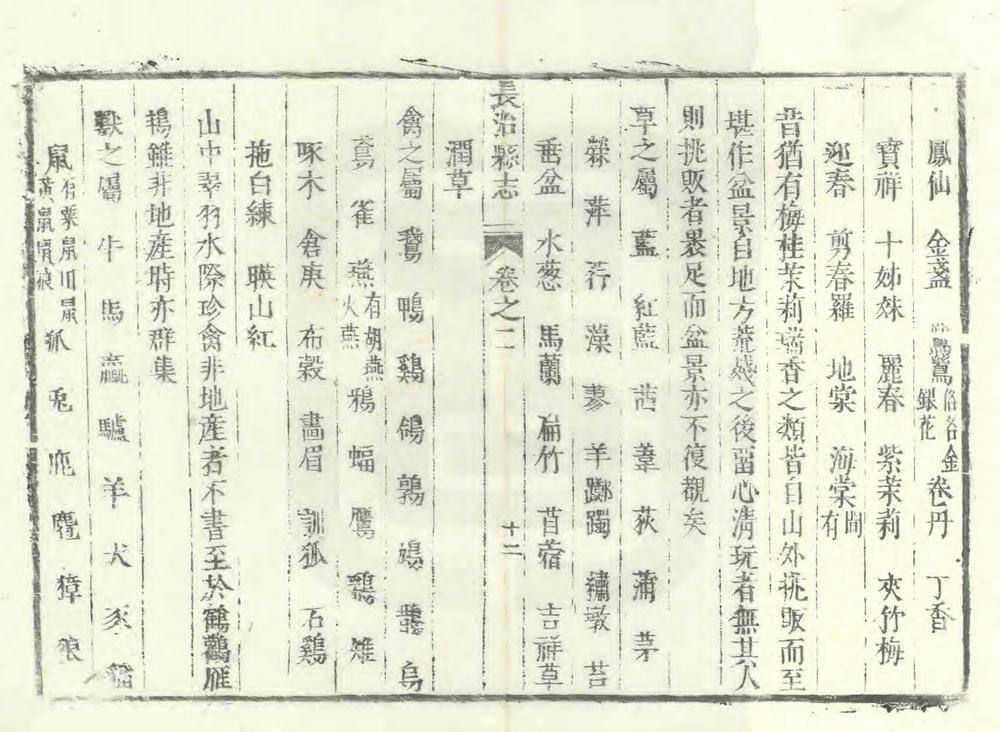 鳳仙 金盞 鶯鴦 俗名金銀花 卷丹 丁香
寳祥 十姊妹 麗春 紫茉莉 夾竹梅
迎春 剪春羅 地棠 海棠間有
昔猶有梅桂茉莉瑞香之類皆自山外挑販而至
堪作盆景自地方荒殘之後留心清玩者無其人
則挑販者褁足而盆景亦不復覩矣
草之屬 藍 紅藍 茜 萋 荻 蒲 茅
蘋 萍 荇 藻 蓼 羊躑躅 繡墩 苔
垂盆 水葱 馬蘭 扁竹 苜蓿 吉祥草
潤草
長治縣志 卷之二 十二
禽之屬 鵞 鴨 鷄 鴿 鶉 鴻 烏
雀 燕有胡燕火燕 鴉 蝠 鷹 鷂 雉
啄木 倉庚 布穀 畵眉 訓狐 石鷄
拖白練 暎山紅
山中翠羽水際珍禽非地産者不書至於鶴鸛雁
鶂雖非地産時亦群集
獸之屬 牛 馬 驘 驢 羊 犬 豕 猫
鼠有栗鼠田鼠黄鼠 狼 狐 兎 麅 麂 獐 狼